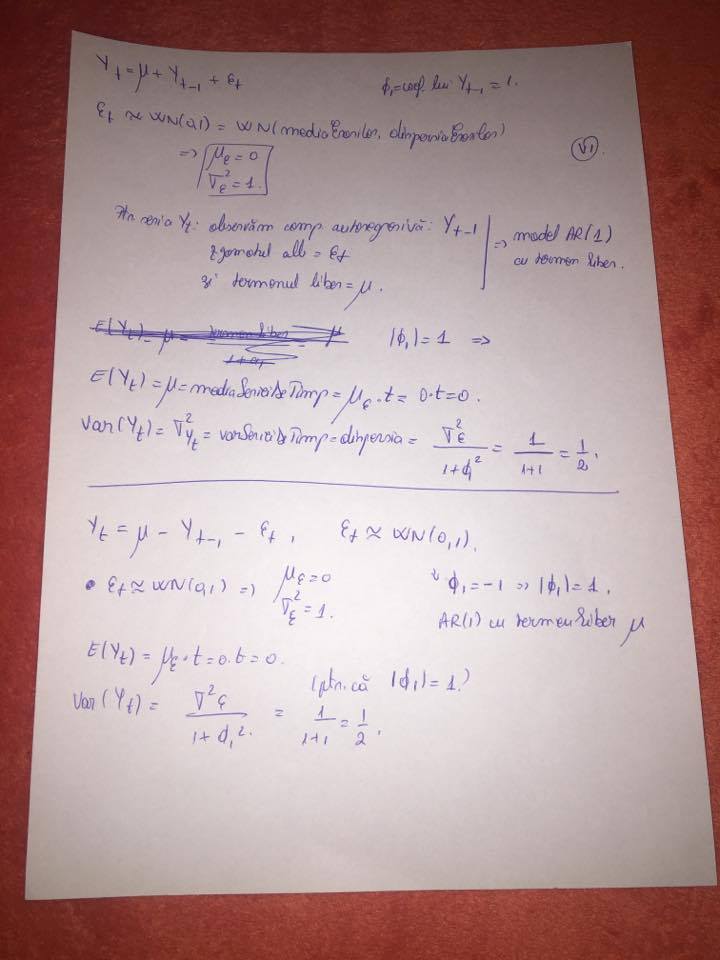 Y_t = μ + Y_{t-1} + ε_t   ϕ_1 = coef. lui Y_{t-1} = 1.
ε_t ≈ WN(0,1) = WN(mediaErorilor, dispersiaErorilor)
VI
=> μ_ε = 0
∇_ε^2 = 1.
În seria Y_t: observăm comp. autoregresivă: Y_{t-1} | => model AR(1)
zgomotul alb = ε_t   cu termen liber.
și termenul liber = μ.
E(Y_t) = μ = termen liber μ   |ϕ_1| = 1 =>
E(Y_t) = μ = mediaSerieideTimp = μ_ε · t = 0·t = 0.
Var(Y_t) = ∇^2_{Y_t} = varSerieideTimp = dispersia = ∇_ε^2 / (1+ϕ_1^2) = 1/(1+1) = 1/2.
Y_t = μ - Y_{t-1} - ε_t,   ε_t ≈ WN(0,1).
• ε_t ≈ WN(0,1) => μ_ε = 0   ↓ ϕ_1 = -1 => |ϕ_1| = 1.
∇_ε^2 = 1.   AR(1) cu termen liber μ
E(Y_t) = μ_ε · t = 0·t = 0.
(ptr. că |ϕ_1| = 1.)
Var(Y_t) = ∇^2ε / (1+ϕ_1^2) = 1/(1+1) = 1/2.